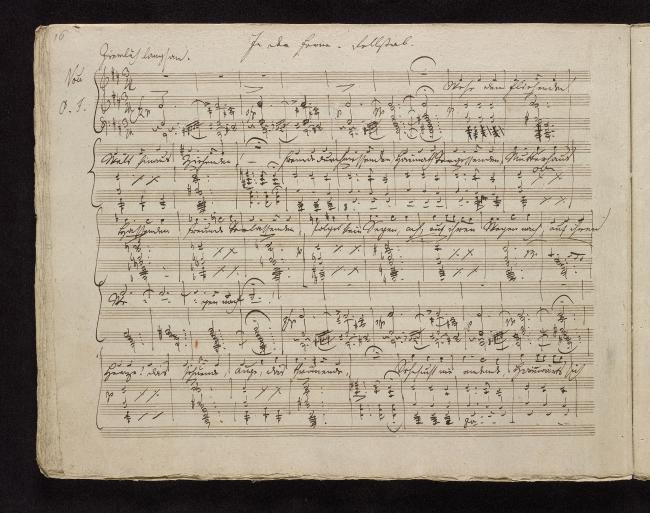 16
In der Ferne. Rellstab.
Ziemlich langsam.
Wehe dem Fliehenden
Welt hinaus ziehenden Fremde durchmessenden Heimath vergessenden, Mutterhaus
hassenden Freunde verlassenden folget kein Segen, ach auf ihren Wegen nach, auf ihren
We - gen nach
Herze! das sehnende, Auge, das thränende, Sehnsucht nie endende, heimwärts sich